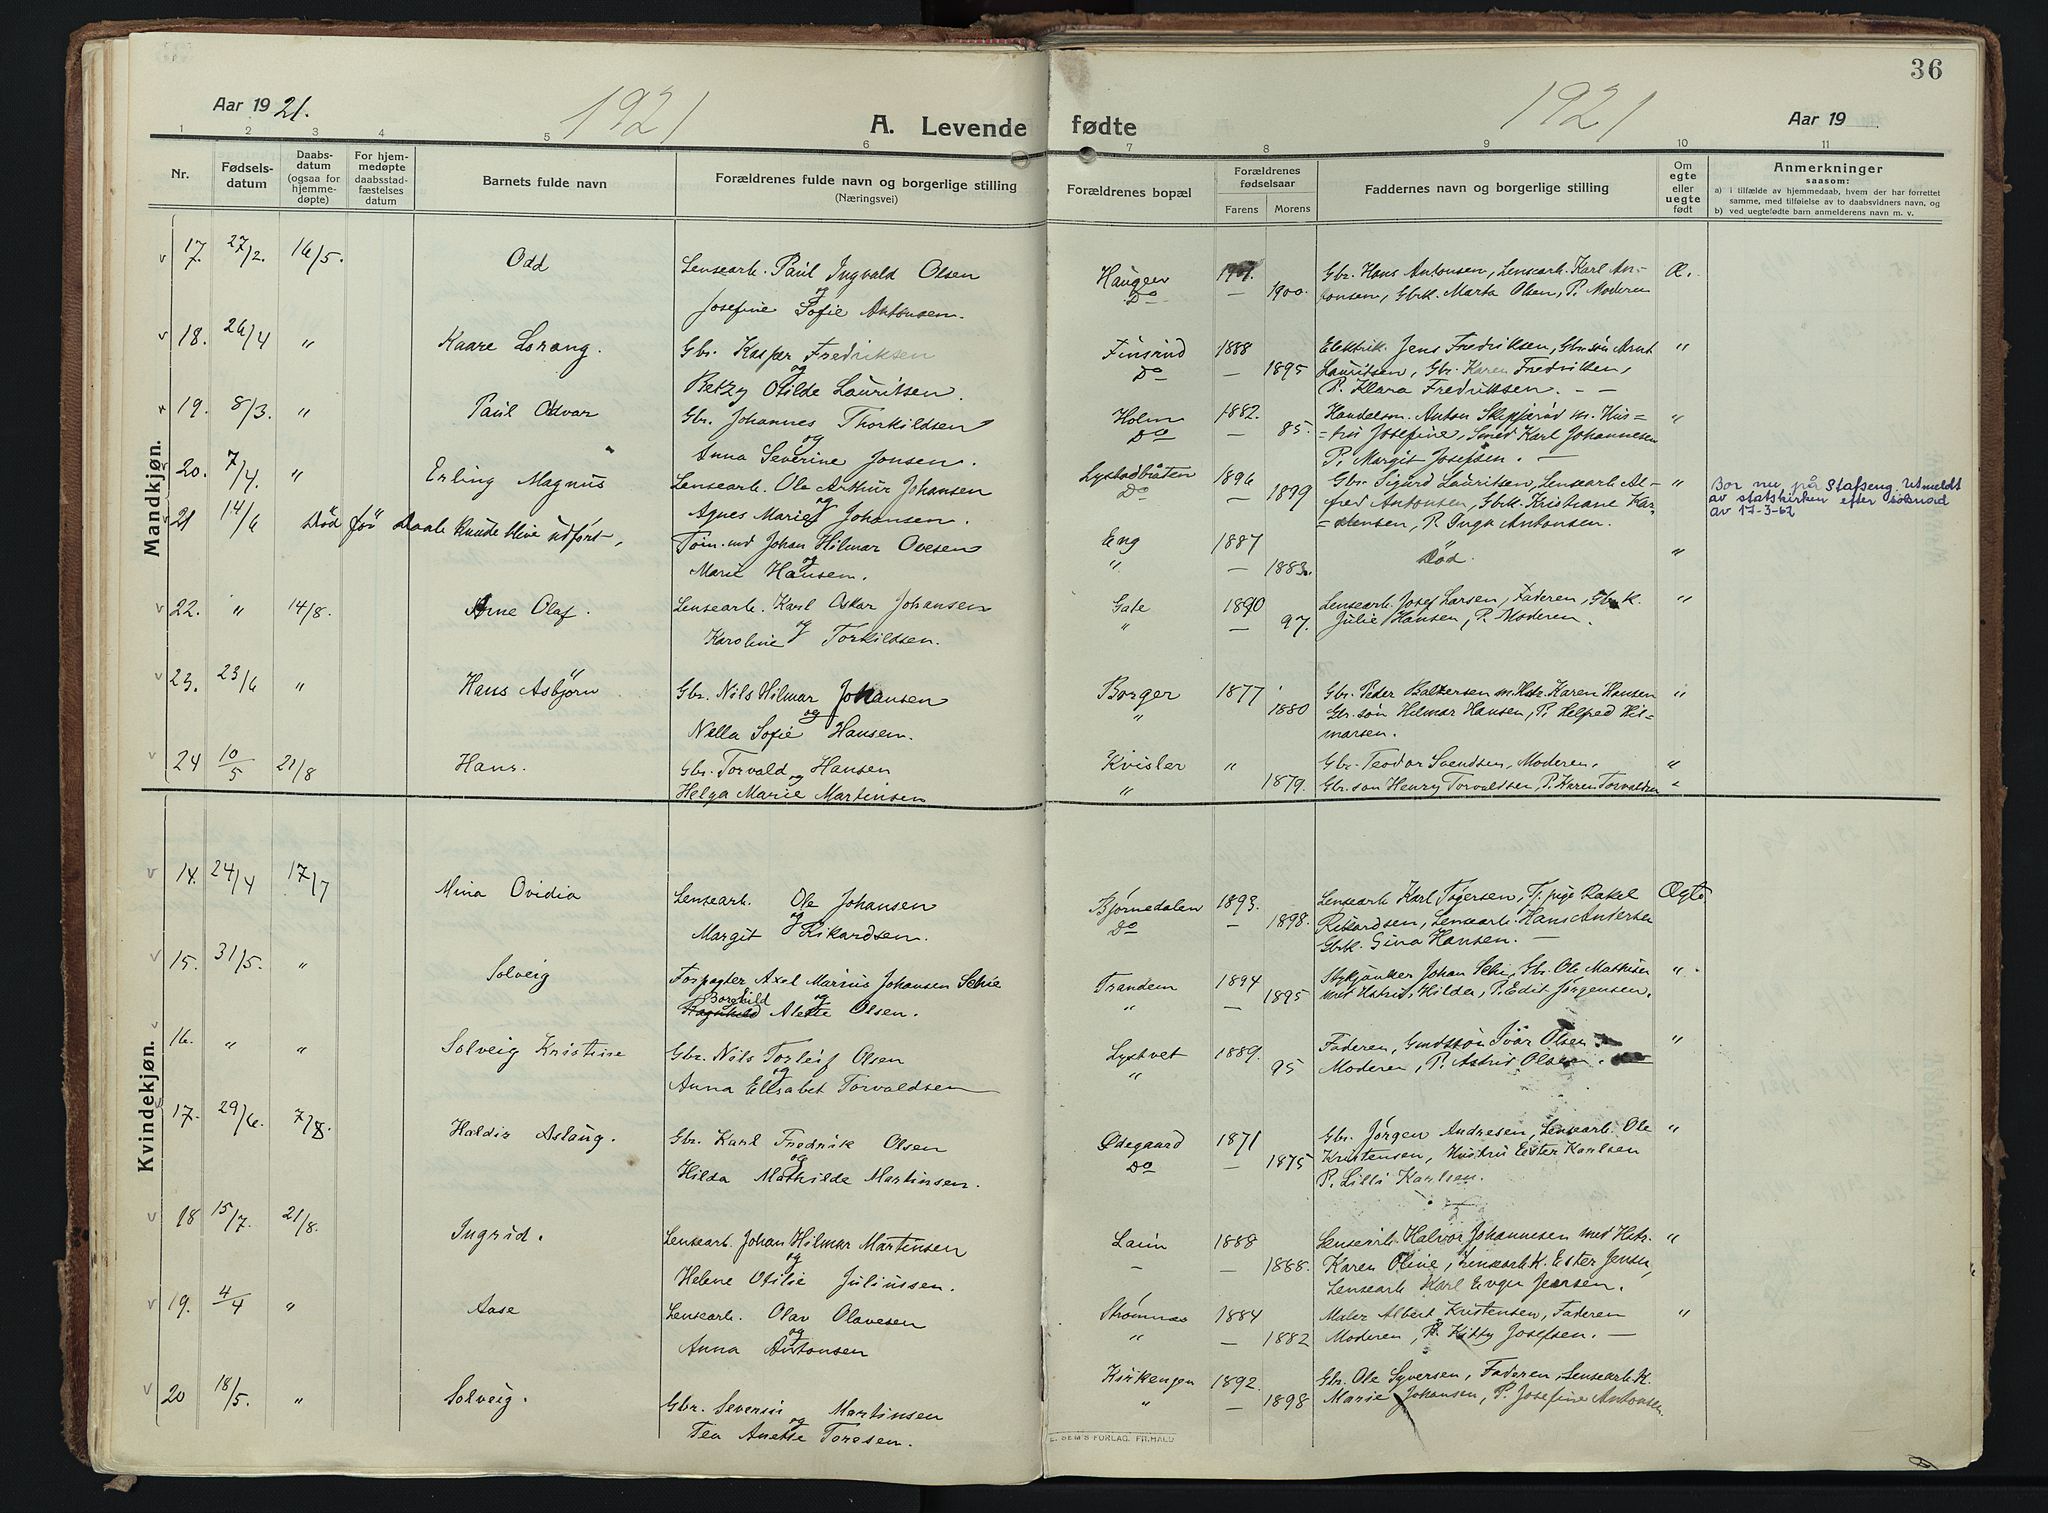 36
Aar 1921.
1921
A. Levende fødte
1921
Aar 19
1 2 3 4 5 6 7 8 9 10 11
Nr.
Fødsels-
datum
Daabs-
datum
(ogsaa for
hjemme-
døpte)
For hjem-
medøpte
daabsstad-
fæstelses
datum
Barnets fulde navn
Forældrenes fulde navn og borgerlige stilling
(Næringsvei)
Forældrenes bopæl
Forældrenes
fødselsaar
Farens Morens
Faddernes navn og borgerlige stilling
Om
egte
eller
uegte
født
Anmerkninger
saasom:
a) i tilfælde av hjemmedaab, hvem der har forrettet
samme, med tilføielse av to daabsvidners navn, og
b) ved uegtefødte barn anmelderens navn m. v.
Mandkjøn.
v 17. 27/2. 16/5. Odd Lensearb. Paul Ingvald Olsen Haugen Gbr. Hans Antonsen, Lensearb. Karl An- Æ.
og
Josefine Sofie Antonsen. Do — 1900. tonsen, Gbrk. Marta Olsen, P. Moderen
v 18. 26/4 " Kaare Lorang. Gbr. Kasper Fredriksen Finsrud 1888 Elektrik. Jens Fredriksen, Gbr. søn Arnt "
og
Betzy Otilde Lauritsen. Do — 1895 Lauritsen, Gbr. Karen Fredriksen,
P. Klara Fredriksen. — —
19. 8/3. " Paul Odvar Gbr. Johannes Thorkildsen Holm 1882. Handelsm. Anton Skipperød m. Hus- "
og
Anna Severine Jonsen. Do — 85. =tru Josefine, Smed Karl Johannesen
P. Margit Josefsen. —
20. 7/4. " Erling Magnus Lensearb. Ole Arthur Johansen Lystadbråten 1896 Gbr. Sigurd Lauritsen, Lensearb. Al- " Bor nu på Stafseng. Utmeldt
og
Agnes Marie Johansen. Do — 1899 fred Antonsen, Gbrk. Kristiane Kar- av statskirken efter søknad
=stensen, P. Inga Antonsen. av 17-3-62
21 14/6 Død før Daab kunde blive udført, Tøm.md Johan Hilmar Ovesen Eng 1887 Død. "
og
Marie Hansen. " — 1883.
v 22. " 14/8. Arne Olaf. Lensearb. Karl Oskar Johansen Gate 1890 Lensearb. Josef Larsen, Faderen, Gbrk. "
og
Karoline Torkildsen. " — 97. Julie Hansen, P. Moderen.
v 23. 23/6 " Hans Asbjørn Gbr. Nils Hilmar Johansen Borger 1877 Gbr. Peder Baltzersen m. Hstr. Karen Hansen "
og
Nella Sofie Hansen. " 1880 Gbr. søn Hilmar Hansen, P. Helfred Hil-
marsen.
v 24 10/5 21/8 Hans. Gbr. Torvald Hansen Kvisler " Gbr. Teodor Svendsen, Moderen, "
og
Helga Marie Martinsen " 1879. Gbr. søn Henry Torvaldsen, P. Karen Torvaldsen "
Kvindekjøn.
v 14. 24/4 17/7 Mina Ovidia Lensearb. Ole Johansen Bjørnedalen 1893. Lensearb. Karl Togersen, Tj. pige Rakel Ægte
og
Margit Rikardsen. Do — 1898. Rikardsen, Lensearb. Hans Andersen
Gbrk. Gina Hansen. —
v 15. 31/5. " Solveig Forpagter Axel Marius Johansen Schie Trandem 1894 Stykjunker Johan Schi, Gbr. Ole Mathisen "
Borghild og
Ragnhild Alette Olsen. " 1895 med Hstr. Hilda, P. Edit Jørgensen.
v 16. " " Solveig Kristine Gbr. Nils Torleif Olsen Lystvet 1889. Faderen, Gmdssøn Ivar Olsen "
og
Anna Elisabet Torvaldsen " 95 Moderen, P. Astrid Olsen.
v 17. 29/6. 7/8. Haldis Aslaug. Gbr. Karl Fredrik Olsen Ødegaard 1871 Gbr. Jørgen Andresen, Lensearb. Ole "
og
Hilda Mathilde Martinsen. Do — 1875 Kristensen, Hustru Ester Karlsen
P. Lilli Karlsen.
v 18 15/7. 21/8. Ingrid. Lensearb. Johan Hilmar Martinsen Laun 1888 Lensearb. Halvor Johannesen med Hstr. "
og
Helene Otilie Juliussen. — — 1888. Karen Oline, Lensearb.k. Ester Jensen,
Lensearb. Karl Evgen Jensen.
v 19. 4/4 " Aase Lensearb. Olav Olavesen Strømnes 1884 Maler Albert Kristensen, Faderen "
og
Anna Antonsen " — 1882 Moderen, P. Kitty Josefsen. —
v 20 18/5. " Solveig. Gbr. Severin Martinsen Kirkengen 1892. Gbr. Ole Syversen, Faderen, Lensearb.k.
og
Tea Anette Toresen. " — 1898 Marie Johansen, P. Josefine Antonsen.
E. SEM'S FORLAG, FR.HALD